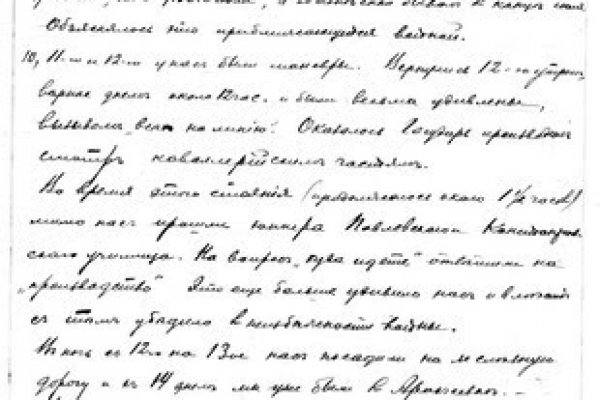 Объяснялось это приближающейся войной.
10, 11-го и 12-го у нас были маневры. Вернулись 12-го утром,
вернее днем около 12 час. и были весьма удивлены,
вызовом "всех на линию". Оказалось Государь производит
смотр кавалерийским частям.
Во время этого стояния (продолжалось около 1½ часов)
мимо нас прошли юнкера Павловского
училища. На вопрос "куда идете" ответили на
"производство" Это еще больше удивило нас и
с тем убедило в неизбежности войны.
В ночь с 12го на 13ое нас посадили на железную
дорогу и 14 днем мы уже были в